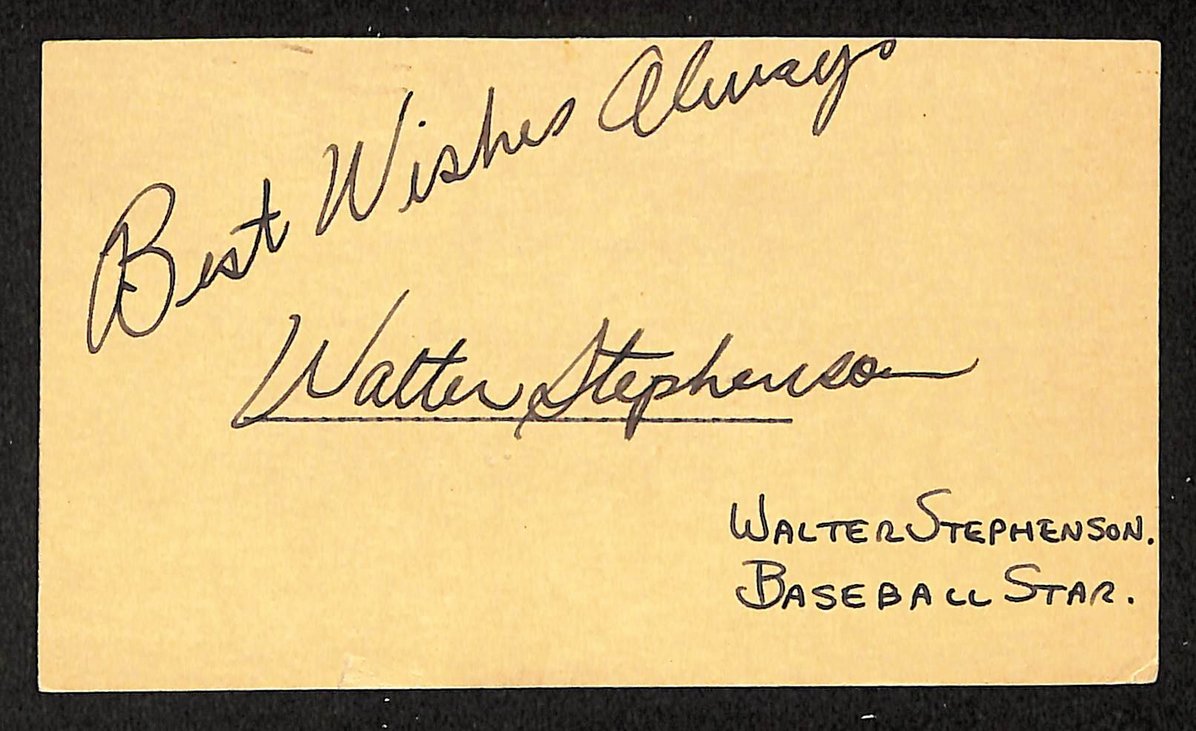 Best Wishes Always
Walter Stephenson
WALTER STEPHENSON.
BASEBALL STAR.